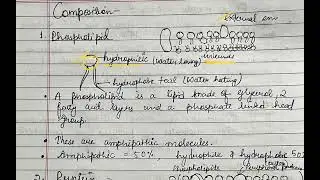 Composition-
external env
1. Phospholipid
hydrophilic (water loving)
hydrophobe tail (water hating)
• A phospholipid is a lipid made of glycerol, 2
fatty acid layers and a phosphate linked head
group.
• These are amphipathic molecules.
• Amphipathic = 50% hydrophilic & hydrophobe 50%
Phospholipids
2.